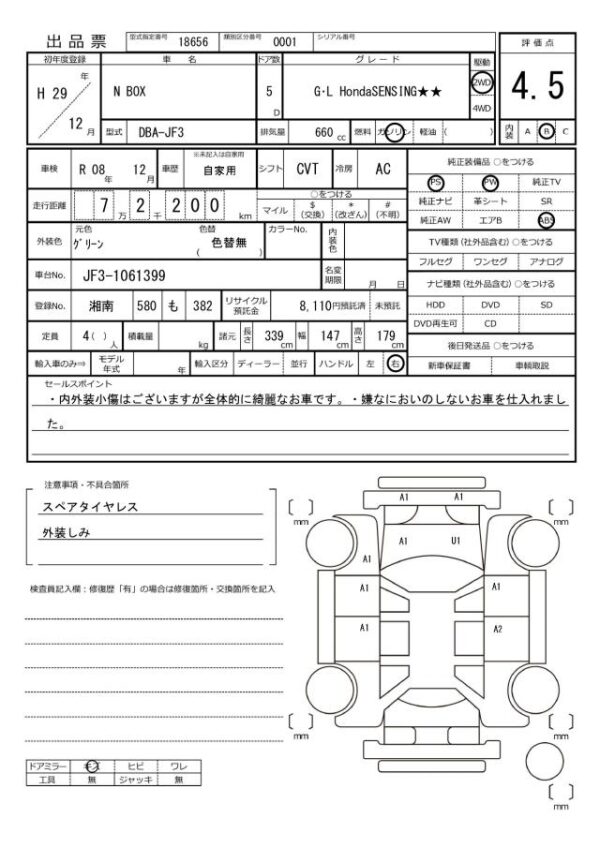 出品票 型式指定番号 18656 類別区分番号 0001 シリアル番号
初年度登録 車名 ドア数 グレード 駆動 評価点
H 29 年 12 月 N BOX 5 D G・L HondaSENSING★★ 2WD 4WD 4.5
型式 DBA-JF3 排気量 660 cc 燃料 ガソリン 軽油 ( ) 内装 A B C
車検 R 08 年 12 月 車歴 ※未記入は自家用 自家用 シフト CVT 冷房 AC 純正装備品 ○をつける
走行距離 7 万 2 千 2 0 0 km ○をつける PS PW 純正TV
マイル $ (交換) * (改ざん) # (不明) 純正ナビ 革シート SR
純正AW エアB ABS
外装色 元色 グリーン 色替 色替無 ( ) カラーNo. 内装色 TV種類 (社外品含む) ○をつける
フルセグ ワンセグ アナログ
車台No. JF3-1061399 名変期限 月 日 ナビ種類 (社外品含む) ○をつける
登録No. 湘南 580 も 382 リサイクル預託金 8,110円預託済 未預託 HDD DVD SD
DVD再生可 CD
定員 4 ( ) 人 積載量 kg 諸元 長さ 339 cm 幅 147 cm 高さ 179 cm 後日発送品 ○をつける
輸入車のみ⇒ モデル年式 年 輸入区分 ディーラー 並行 ハンドル 左 右 新車保証書 車輌取説
セールスポイント
・内外装小傷はございますが全体的に綺麗なお車です。・嫌なにおいのしないお車を仕入れまし
た。
注意事項・不具合箇所
スペアタイヤレス
外装しみ
検査員記入欄：修復歴「有」の場合は修復箇所・交換箇所を記入
A1 A1
A1 U1
A1
A1 A1
A1 A2
[ ] mm [ ] mm
[ ] mm [ ] mm
[ ] mm
ドアミラー キズ ヒビ ワレ
工具 無 ジャッキ 無